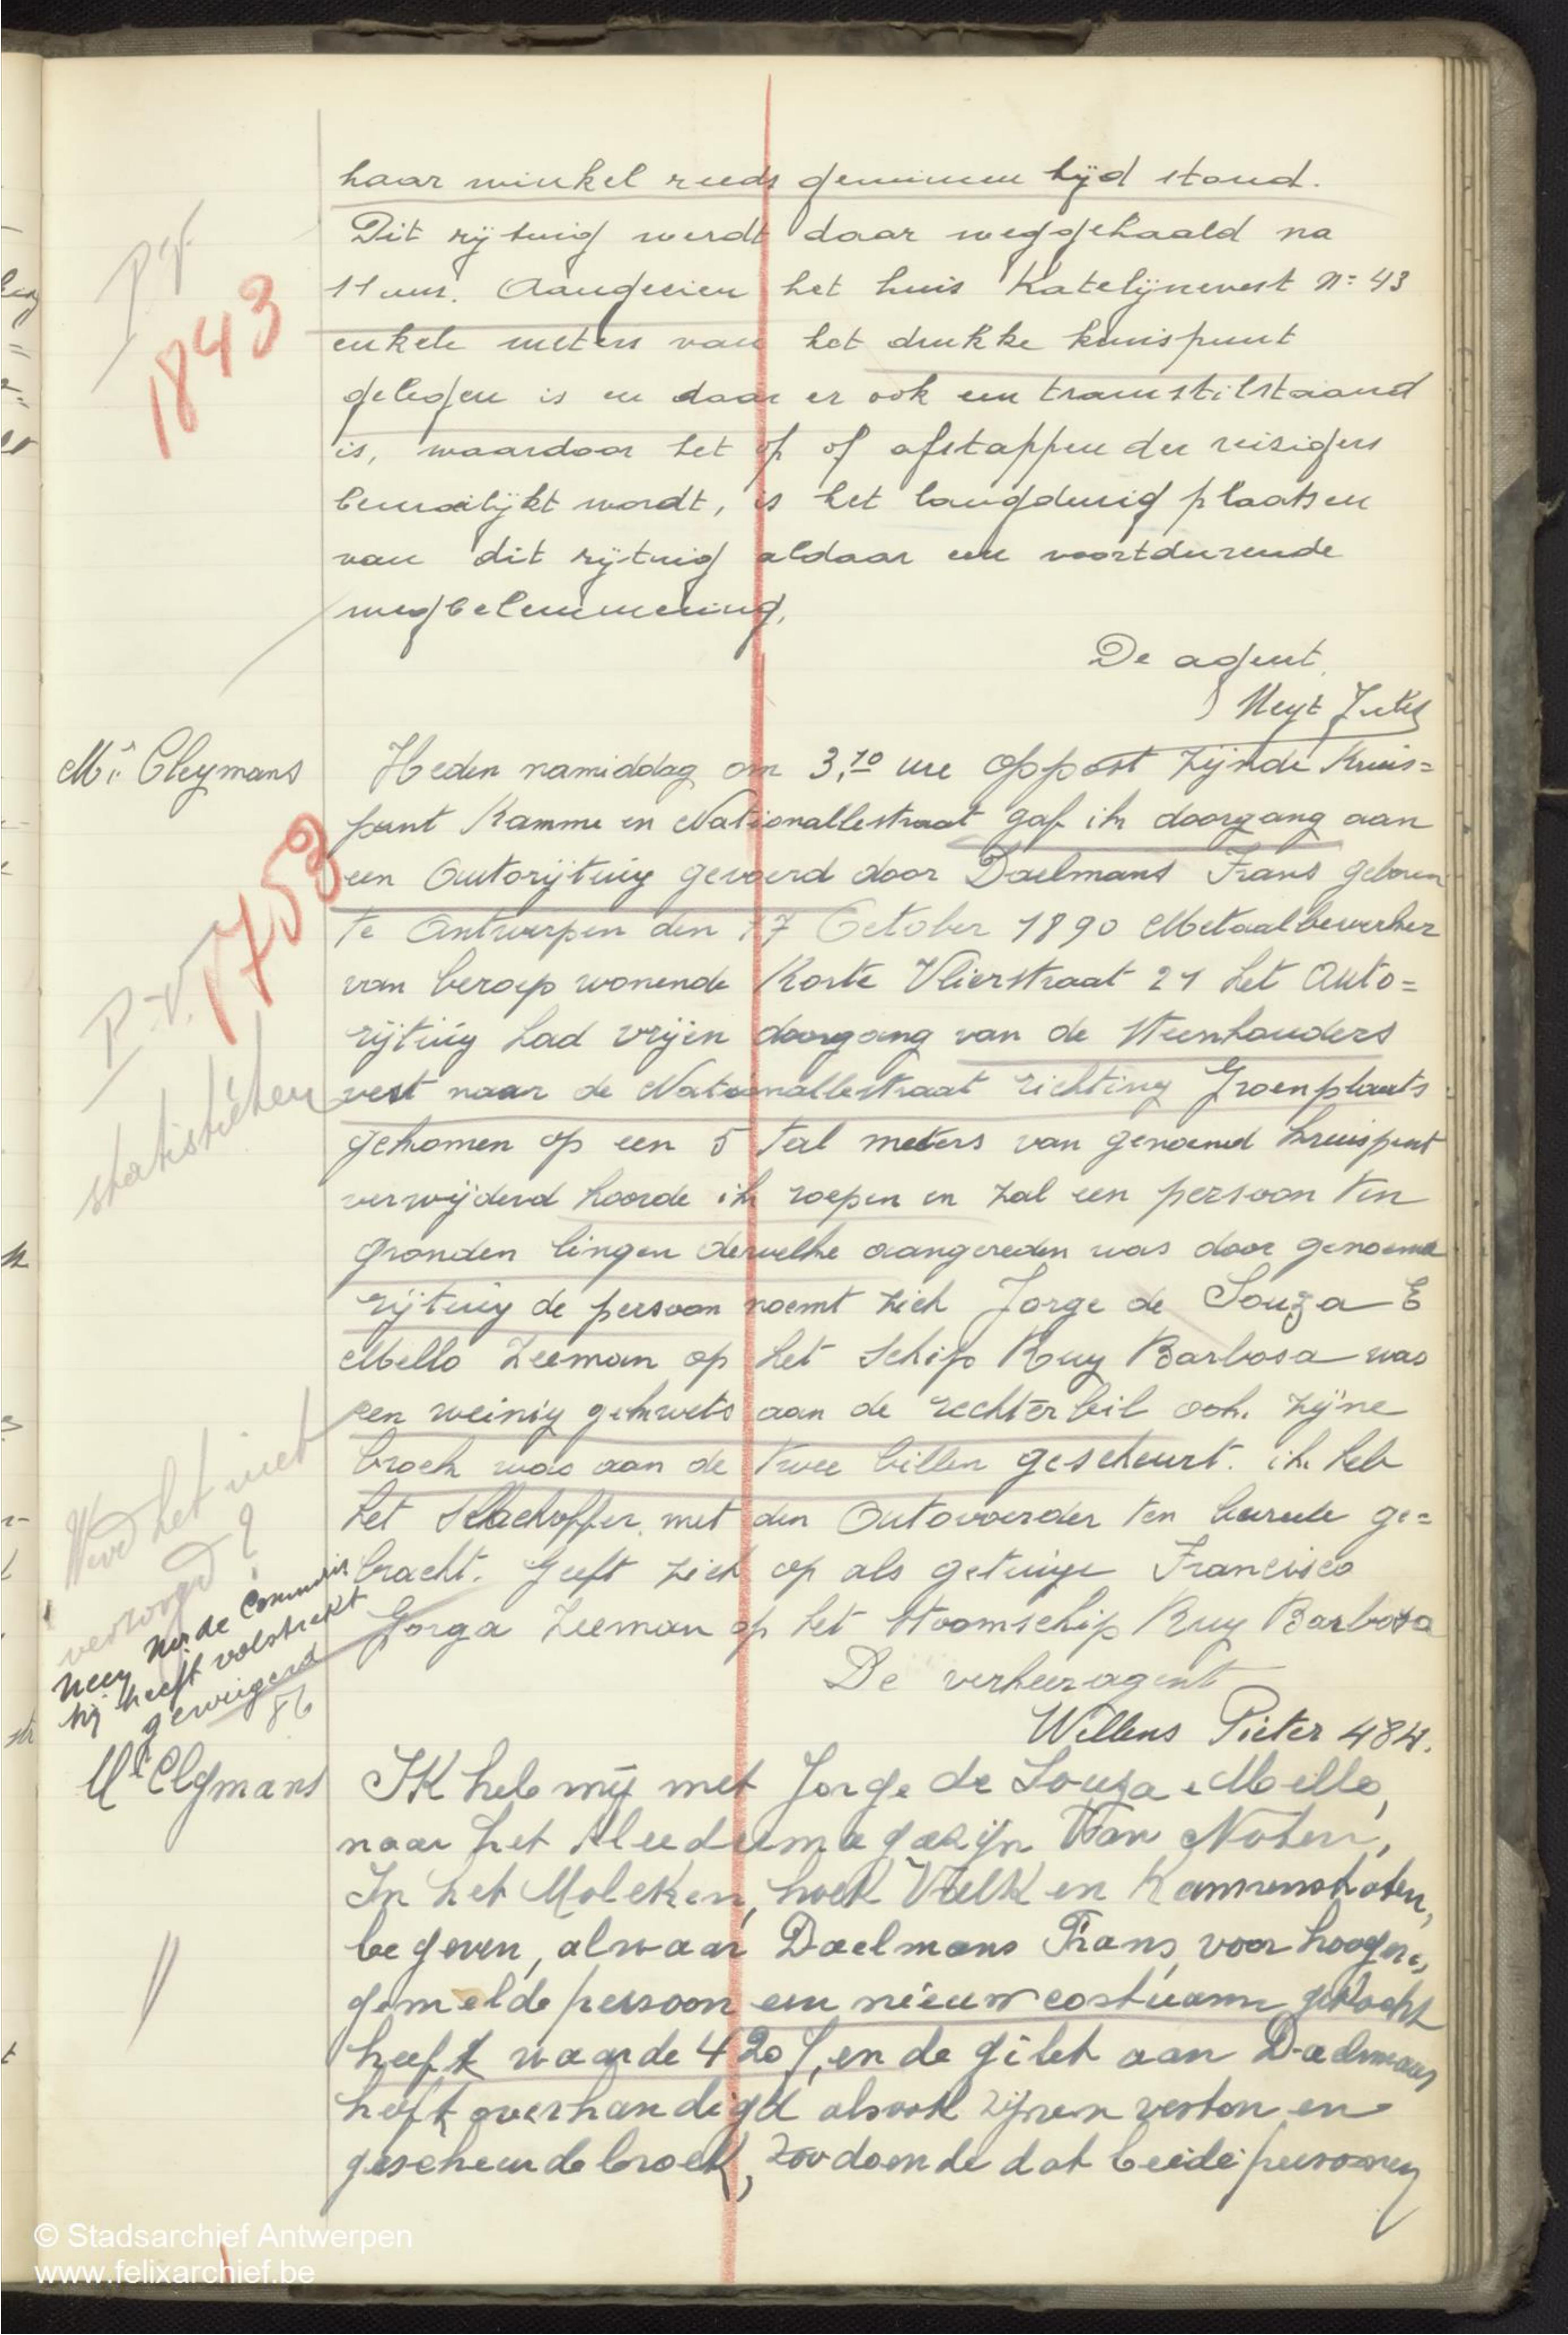 haar winkel reeds geruimen tijd stond.
Dit rijtuig werdt daar weggehaald na
11 uur. Aangezien het huis Katelijnevest N= 43
enkele meters van het drukke kruispunt
gelegen is en daar er ook een tramstilstaand
is, waardoor het op of afstappen der reizigers
bemoeilijkt wordt, is het langdurig plaatsen
van dit rijtuig aldaar een voortdurende
wegbelemmering.
P.V.
1843
De agent.
Mr. Cleymans
Heden namiddag om 3,10 ure op post zijnde Kruis=
punt Kamme en Nationallestraat gaf ik doorgang aan
een Autorijtuig gevoerd door Daelmans Frans geboren
te Antwerpen den 17 October 1890 Metaalbewerker
van beroep wonende Korte Vlierstraat 21 het Auto=
rijtuig had vrijen doorgang van de Steenhouders
vest naar de Nationallestraat richting Groenplaats
gekomen op een 5 tal meters van genoemd kruispunt
verwijderd hoorde ik roepen en zal een persoon ten
gronden lingen derwelke aangereden was door genoemd
rijtuig de persoon noemt zich Jorge de Souza E
Mello Zeeman op het Schip Ruy Barbosa was
een weinig gekwets aan de rechter bil ook. zijne
broek was aan de twee billen gescheurt. ik heb
het Slachoffer met den Autovoerder ten bureele ge=
bracht. Geeft zich op als getuige Francisco
Gorga Zeeman op het Stoomschip Ruy Barbosa
P.V. 1758
statistieken
Werd het niet
verzorgd?
Neen Mr de Commis
hij heeft volstrekt
geweigerd
86
De verkeeragent
Willens Pieter 484.
Mr Clymans
IK heb mij met Jorge de Souza e Mello,
naar het Kleedermagazijn Van Noten,
In het Moleken, hoek Valk en Kammenstraten,
begeven, alwaar Daelmans Frans, voor hooger,
gemelde persoon een nieuw costuum gekocht
heeft waarde 420 f, en de gilet aan Daelmans
heeft overhandigd alsook zijnen veston en
gescheurde broek, zoodoende dat beide personen
© Stadsarchief Antwerpen
www.felixarchief.be